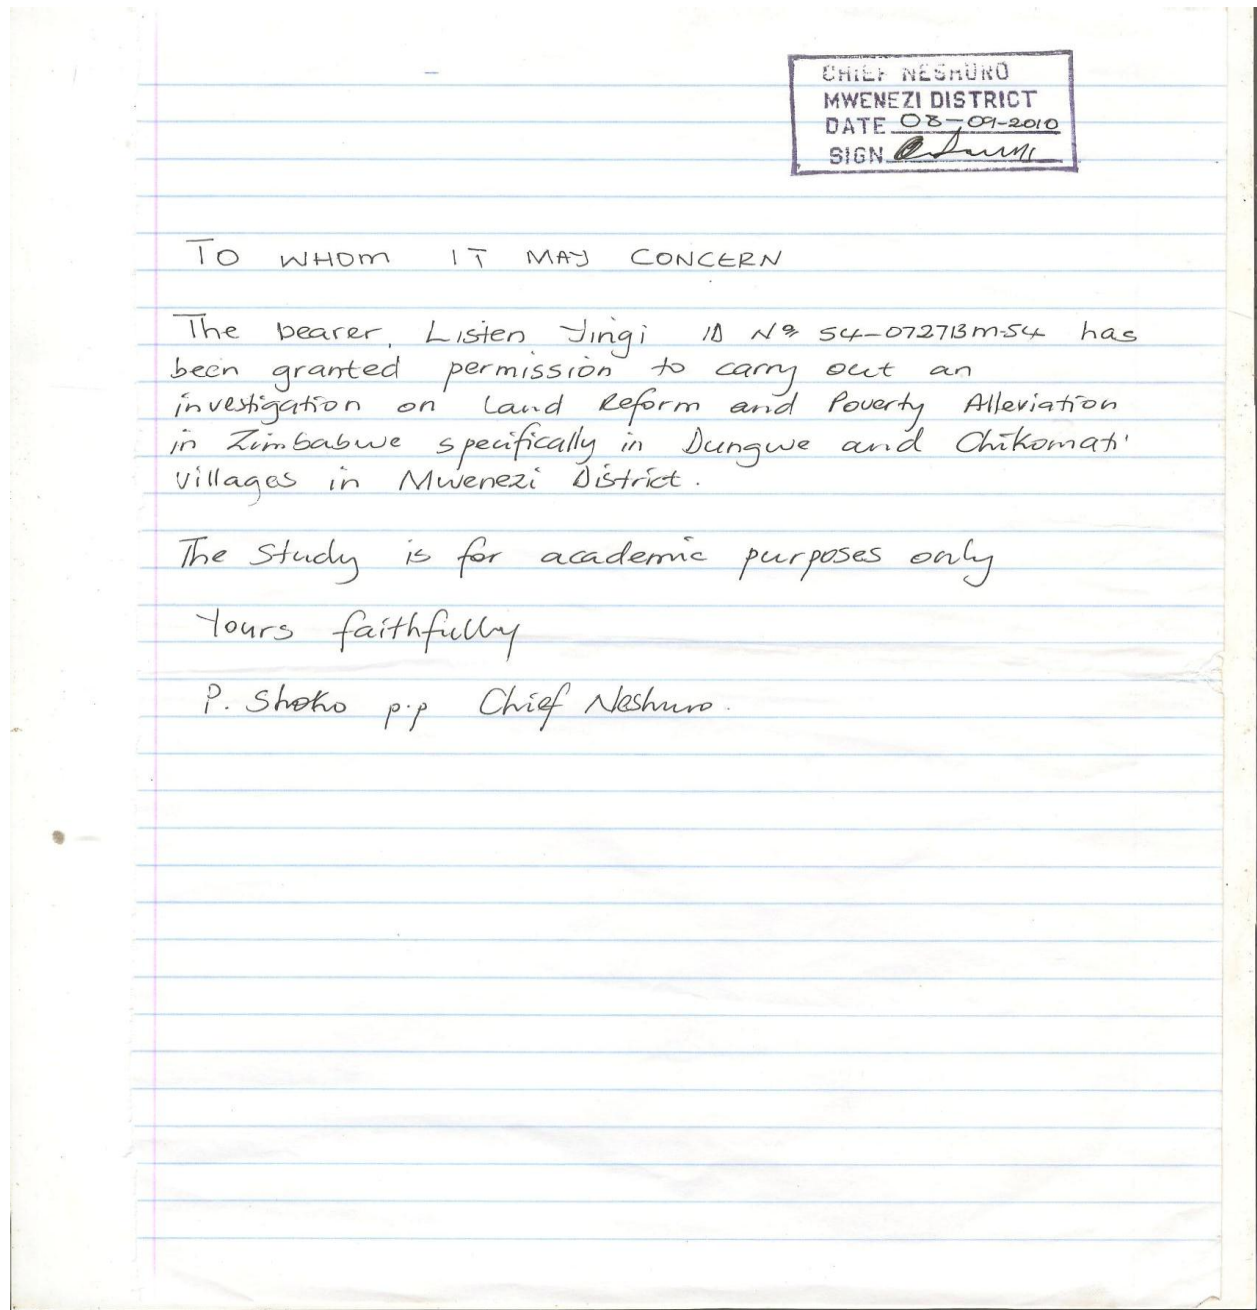 CHIEF NESHURO
MWENEZI DISTRICT
DATE 08-09-2010
SIGN
TO WHOM IT MAY CONCERN
The bearer, Listen Yingi ID Nº 54-072713M-54 has
been granted permission to carry out an
investigation on Land Reform and Poverty Alleviation
in Zimbabwe specifically in Dungwe and Chikomati
villages in Mwenezi District.
The Study is for academic purposes only
Yours faithfully
P. Shoko p.p Chief Neshuro.